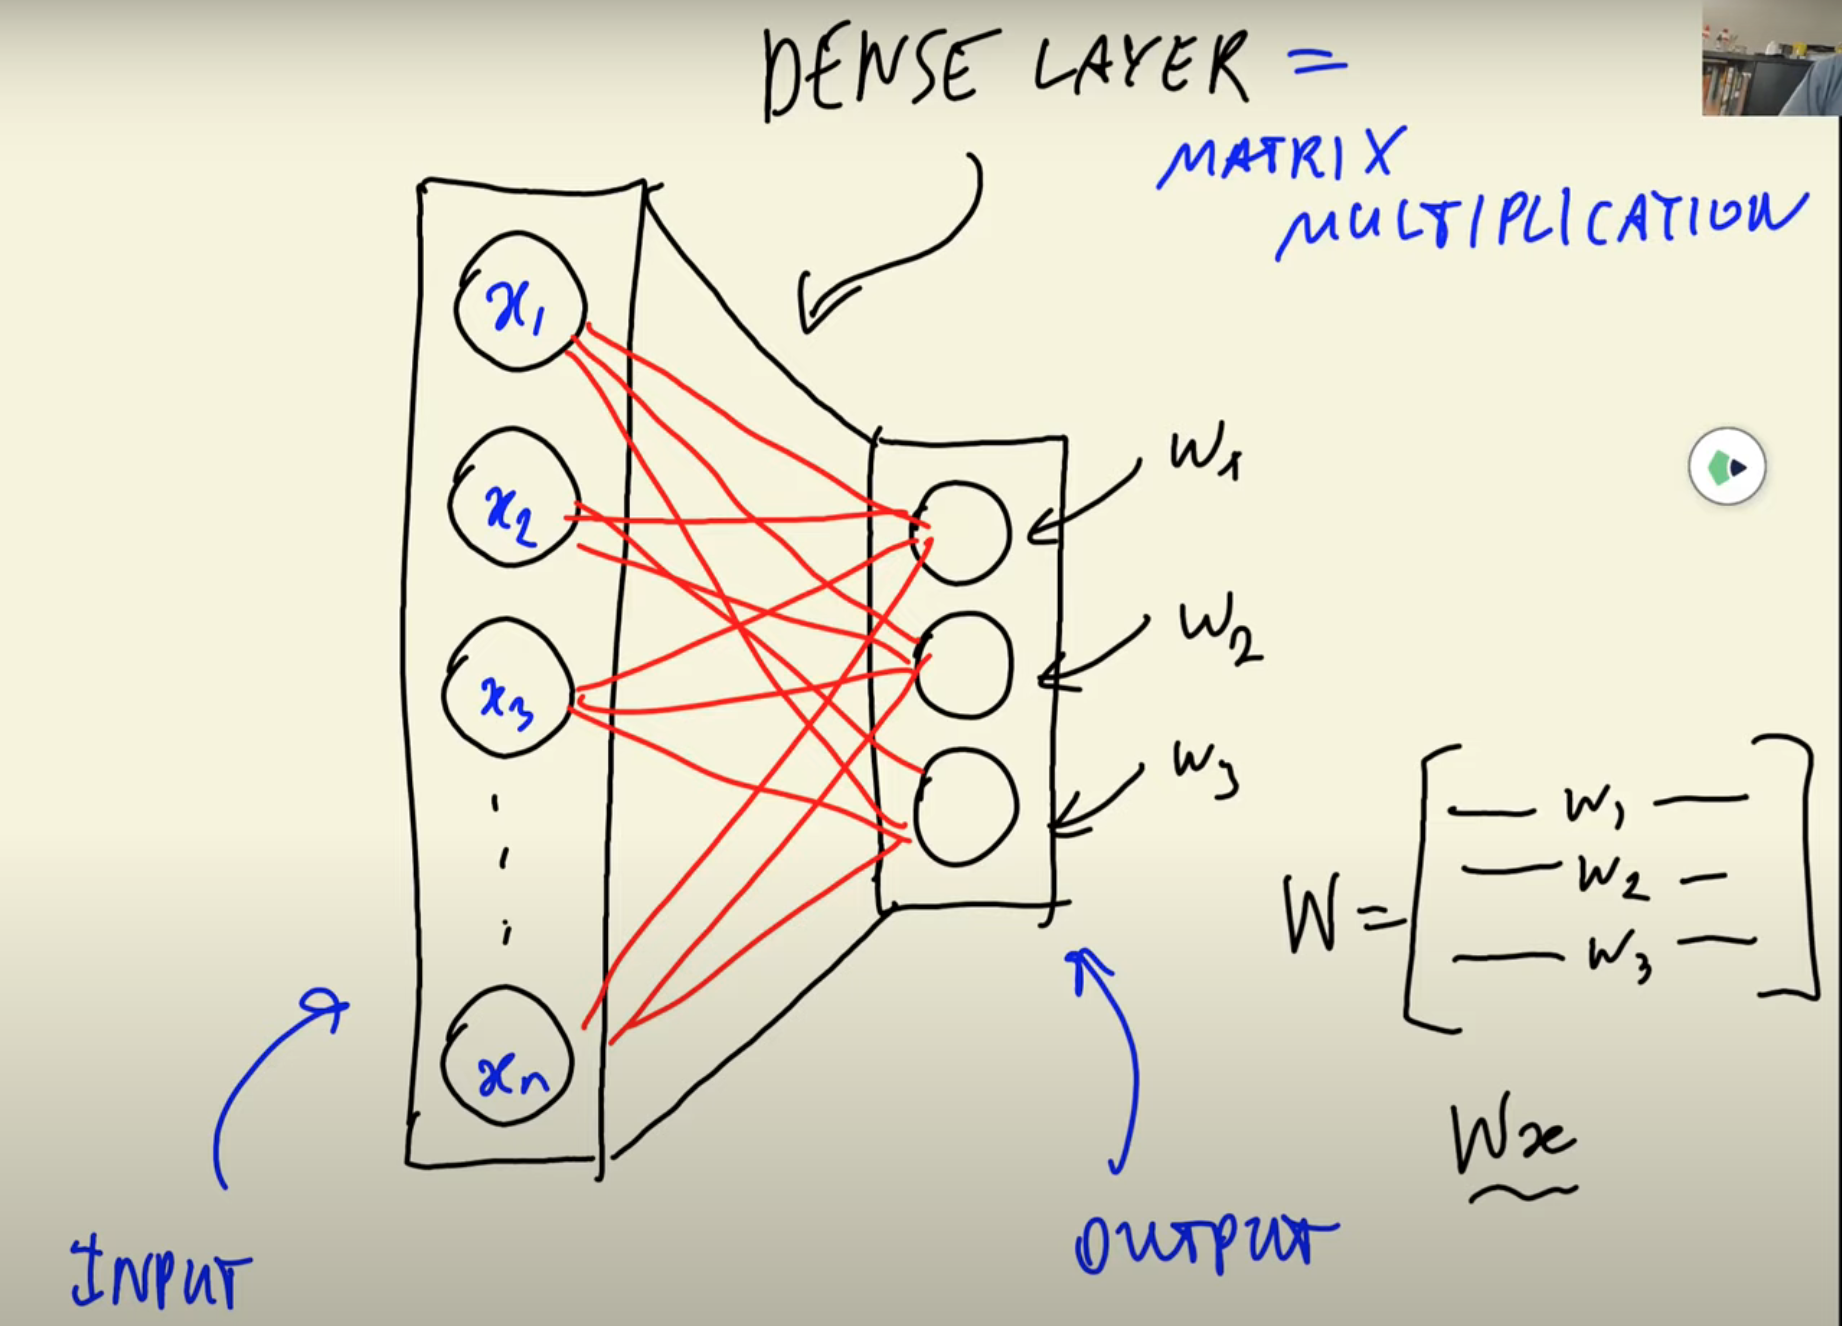 DENSE LAYER =
MATRIX
MULTIPLICATION
x1
x2
x3
xn
w1
w2
w3
W = [ — w1 —
— w2 —
— w3 — ]
Wx
INPUT
OUTPUT